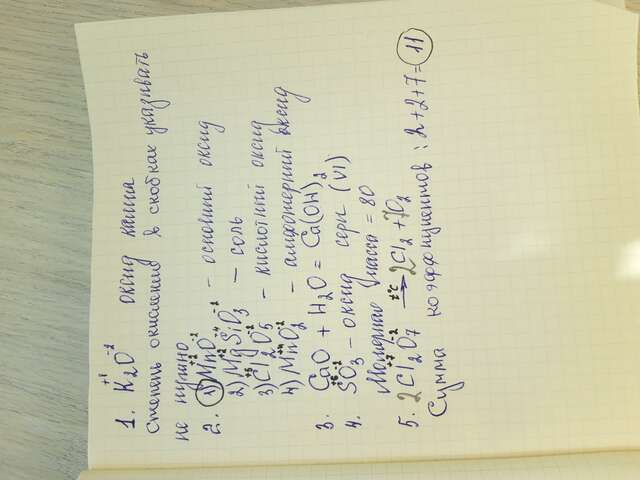 1. K₂⁺¹O⁻² оксид калия
Степень окисления в скобках указывать
не нужно
2. 1) Mn⁺²O⁻² – основный оксид
2) Mg⁺²Si⁺⁴O₃⁻² – соль
3) Cl₂⁺⁵O₅⁻² – кислотный оксид
4) Mn⁺⁴O₂⁻² – амфотерный оксид
3. CaO + H₂O = Ca(OH)₂
4. S⁺⁶O₃⁻² – оксид серы (VI)
Молярная масса = 80
5. 2Cl₂⁺⁷O₇⁻² —t°C→ 2Cl₂ + 7O₂
Сумма коэффициентов: 2+2+7=11